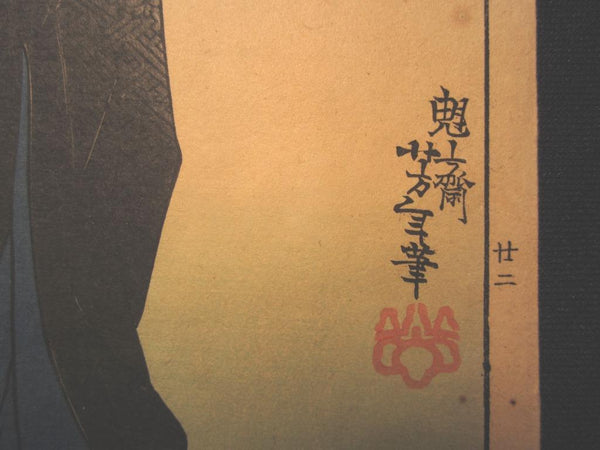 廿二
魁齋
芳年筆